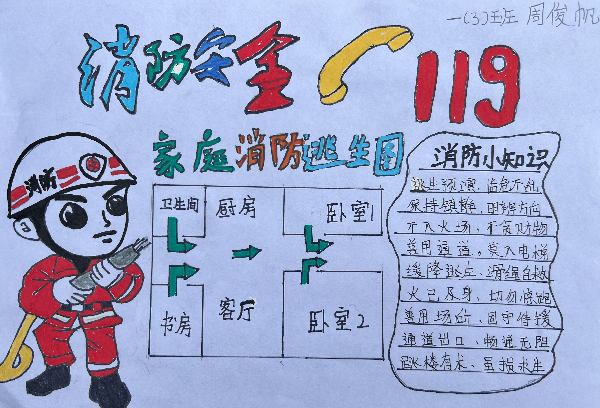 一(3)班 周俊帆
消防安全
119
家庭消防逃生图
消防小知识
消防
卫生间
厨房
卧室1
书房
客厅
卧室2
逃生预演、临危不乱
保持镇静、明辨方向
不入火场、不贪财物
善用通道、莫入电梯
缓降逃生、滑绳自救
火已及身、切勿惊跑
善用场所、固守待援
通道出口、畅通无阻
跳楼有术、虽损求生